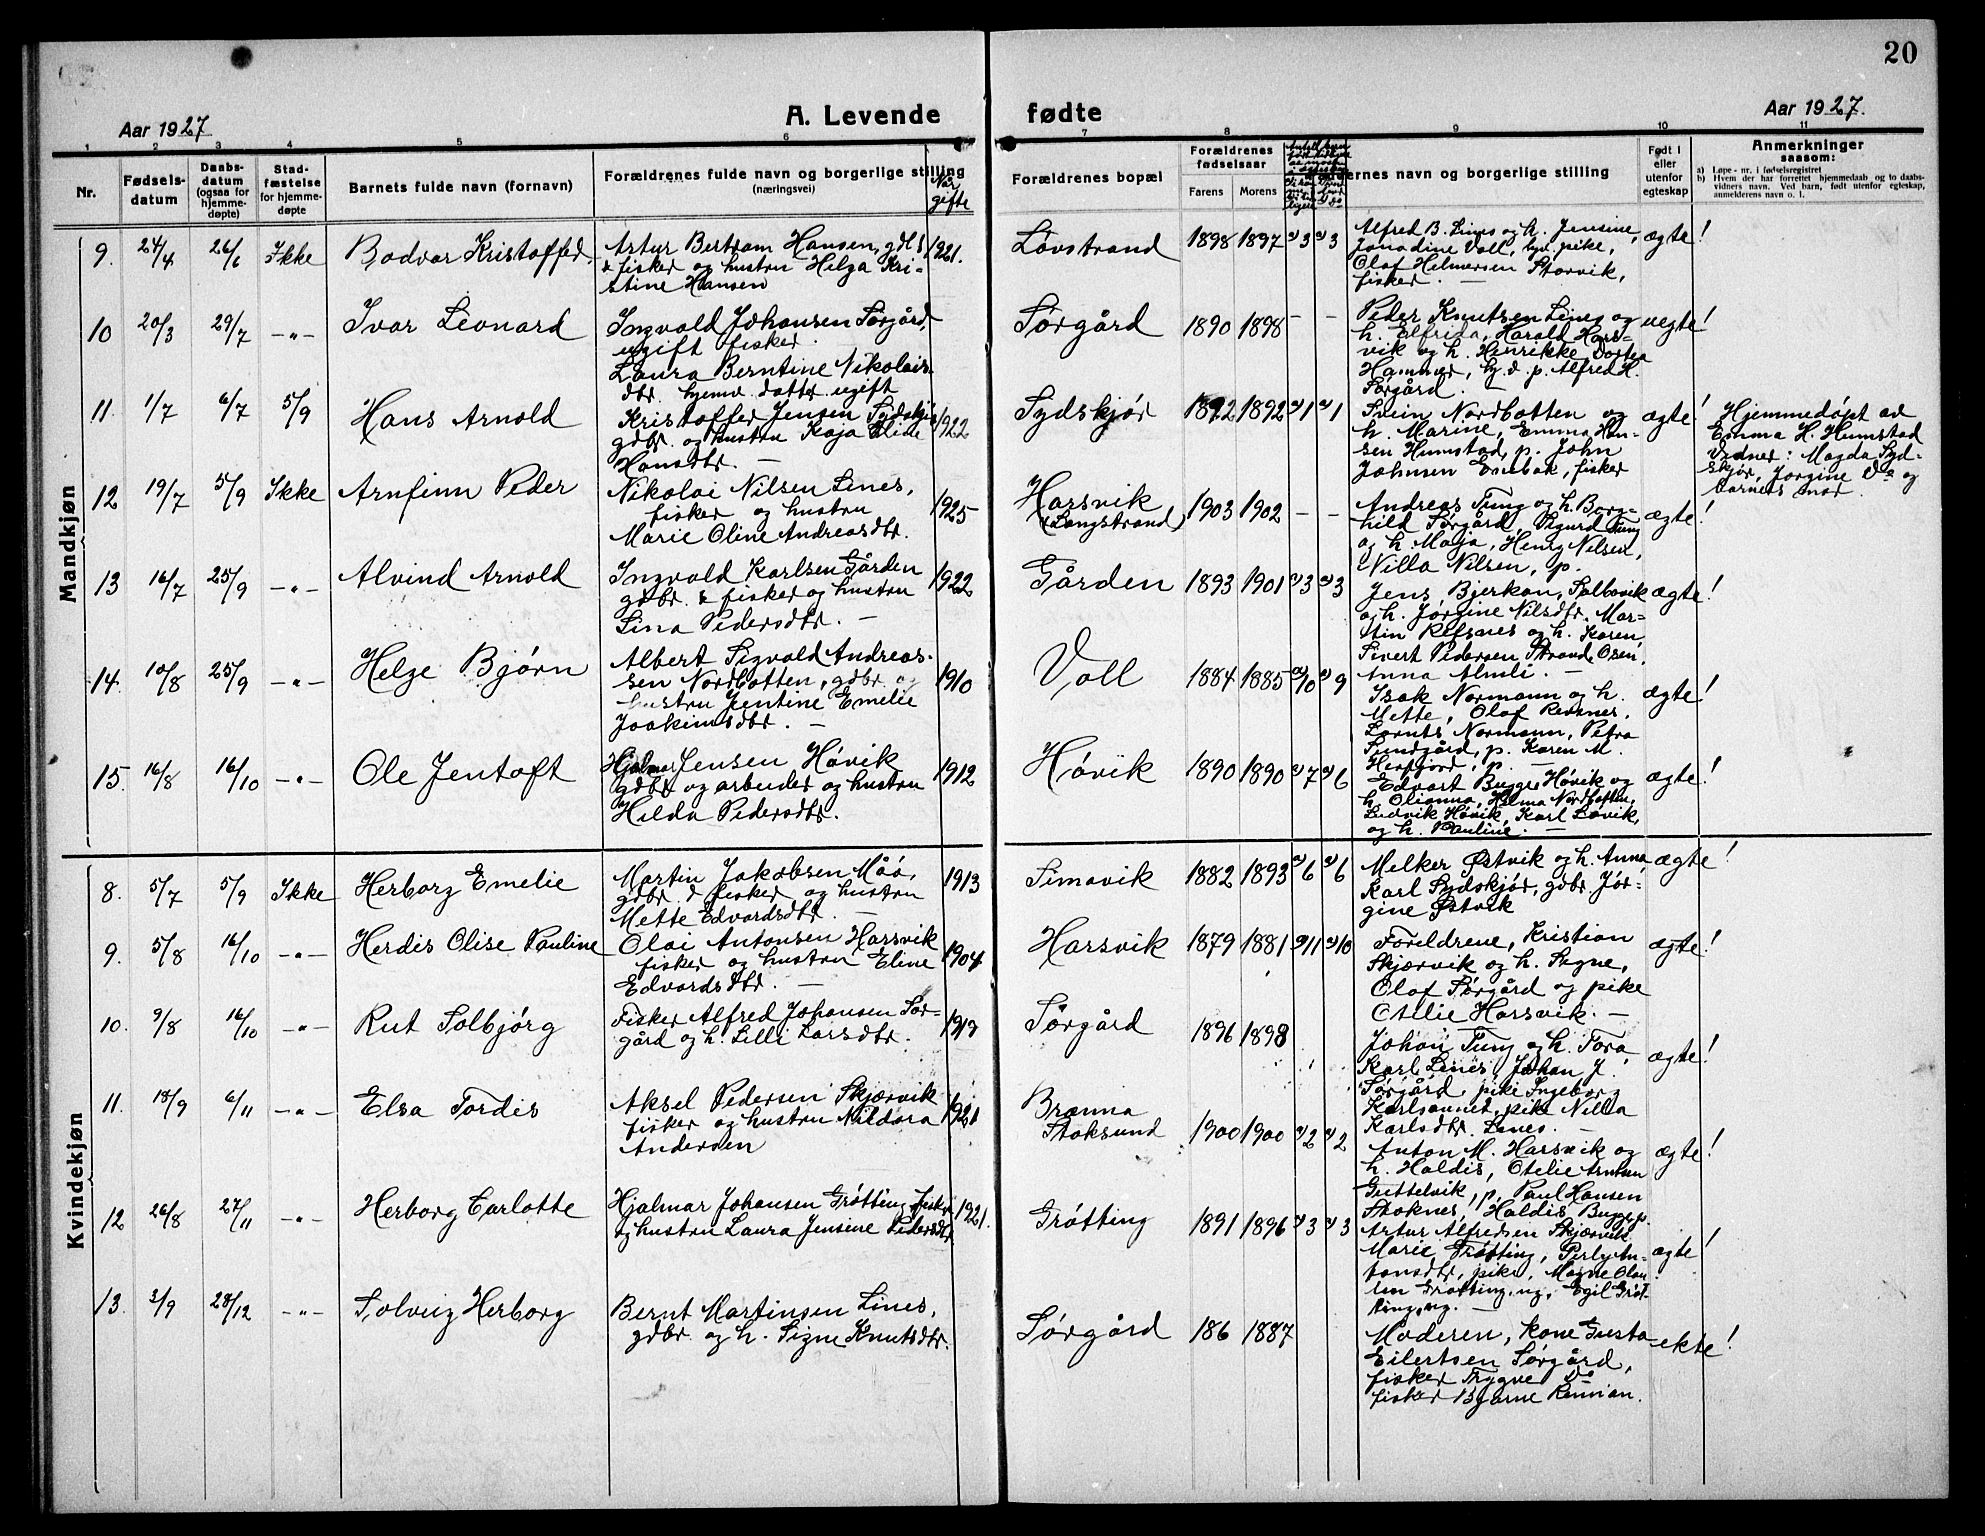 20
Aar 1927
A. Levende
fødte
Aar 1927.
1 2 3 4 5 6 7 8 9 10 11
Nr.
Fødsels-
datum
Daabs-
datum
(ogsaa for
hjemme-
døpte)
Stad-
fæstelse
for hjemme-
døpte
Barnets fulde navn (fornavn)
Forældrenes fulde navn og borgerlige stilling
(næringsvei)
Når
gifte
Forældrenes bopæl
Forældrenes
fødselsaar
Farens
Morens
Faddernes navn og borgerlige stilling
Født i
eller
utenfor
egteskap
Anmerkninger
saasom:
a) Løpe-nr. i fødselsregistret
b) Hvem der har forrettet hjemmedaab og to daabs-
vidners navn. Ved barn, født utenfor egteskap,
anmelderens navn o. l.
Mandkjøn
9. 24/4 26/6 Ikke Bodvar Kristoffer
Artur Bertram Hansen, gdbr
& fisker og hustru Helga Kri-
stine Hansen
1921.
Lóvstrand 1898 1897 3 3
Alfred B. Lines og h. Jensine,
Jonadine Voll, hjv. pike,
Olaf Helmersen Storvik,
fisker. —
ægte!
10 20/3 29/7 -„- Ivar Leonard
Ingvald Johansen Sørgård
ugift fisker.
Laura Berntine Nikolais-
dtr. hjemv. datter ugift
Sørgård 1890 1898 - -
Peder Knutsen Lines og
h. Elfrida, Harald Hars-
vik og h. Henrikke, Dortea
Hammer, hj. d. p. Alfred H.
Sørgård
uegte!
11. 1/7 6/7 5/9 Hans Arnold
Kristoffer Jensen Sydskjór
gdbr. og hustru Kaja Elide
Hansdtr. —
1922
Sydskjór 1892 1892 1 1
Svein Nordbotten og
h. Marine, Emma Han-
sen Humstad, p. John
Johnsen Enebak, fisker
ægte!
Hjemmedópt av
Emma H. Humstad
Vidner: Magda Syd-
skjór, Jorgine Do og
barnets mor.
12 19/7 5/9 Ikke Arnfinn Peder
Nikolai Nilsen Lines,
fisker og hustru
Marie Oline Andreasdtr.
1925
Harsvik
(Langstrand) 1903 1902 - -
Andreas Tung og h. Borg-
hild Sørgård, Sigurd Tung
og h. Maja, Henry Nilsen,
Nilla Nilsen, p.
ægte!
13 16/7 25/9 -„- Alvind Arnold
Ingvald Karlsen Gården
gdbr. & fisker og hustru
Lina Pedersdtr. —
1922
Gården 1893 1901 3 3
Jens Bjerkan, Solbovik
og h. Jørgine Nilsdtr. Mar-
tin Refsnes og h. Karen,
Sivert Pedersen Strand, Osen,
Anna Almli. —
ægte!
14. 10/8 25/9 -„- Helge Bjørn
Albert Sigvald Andreas-
sen Nordbotten, gdbr. og
hustru Jentine Emelie
Joakimsdtr. —
1910
Voll 1884 1885 10 9
Isak Normann og h.
Mette, Olaf Refsnes,
Lornts Normann, Petra
Sundgård, p. Karen M.
Herfjord, p. —
ægte!
15. 16/8 16/10 -„- Ole Jentoft
Hjalmar Jensen Hóvik
gdbr og arbeider og hustru
Hilda Pedersdtr.
1912
Hóvik 1890 1890 7 6
Edvart Bugge Hóvik og
h. Olianna, Helma Nordbotten,
Ludvik Hóvik, Karl Lóvik,
og h. Pauline. —
ægte!
Kvindekjøn
8. 5/7 5/9 Ikke Herborg Emelie
Martin Jakobsen Måó,
gdbr. & fisker og hustru
Mette Edvardsdtr. —
1913
Simavik 1882 1893 6 6
Melker Østvik og h. Anna
Karl Sydskjór, gdbr. Jór-
gine Østvik
ægte!
9. 5/8 16/10 -„- Herdis Olise Pauline
Olai Antonsen Harsvik
fisker og hustru Eline
Edvardsdtr. —
1904
Harsvik 1879 1881 11 10
Foreldrene, Kristian
Skjærvik og h. Signe,
Olaf Sørgård og pike
Otelie Harsvik. —
ægte!
10. 9/8 16/10 -„- Rut Solbjórg
Fisker Alfred Johansen Sør-
gård og h. Lilli Larsdtr.
1919
Sørgård 1896 1898
Johan Tung og h. Tora
Karl Lines, Johan J.
Sørgård, pike Ingeborg
Karlsannet, pike Nilla
Karlsdtr. Lines. —
ægte!
11. 18/9 6/11 -„- Elsa Tordis
Aksel Pedersen Skjærvik
fisker og hustru Nildora
Andersen
1921
Branna
Stoksund 1900 1900 2 2
Anton M. Harsvik og
h. Haldis, Otelie Arntsen
Guttelvik, p, Paul Hansen
Stoknes, Haldis Bugge p.
ægte!
12 26/8 27/11 -„- Herborg Carlotte
Hjalmar Johansen Grótting, fisker
og hustru Laura Jensine Pedersdtr
1921.
Grótting 1891 1896 3 3
Artur Alfredsen Skjærvik
Marie Grótting, Perly An-
tonsdtr, pike, Magne Olau-
sen Grótting, ug, Egil Grót-
ting, ug. —
ægte!
13. 3/9 28/12 -„- Solveig Herborg
Bernt Martinsen Lines,
gdbr. og h. Signe Knutsdtr.
Sørgård 186 1887
Moderen, kone Gusta
Eilertsen Sørgård,
fisker Trygve Do
fisker Bjarne Renman.
ekte!